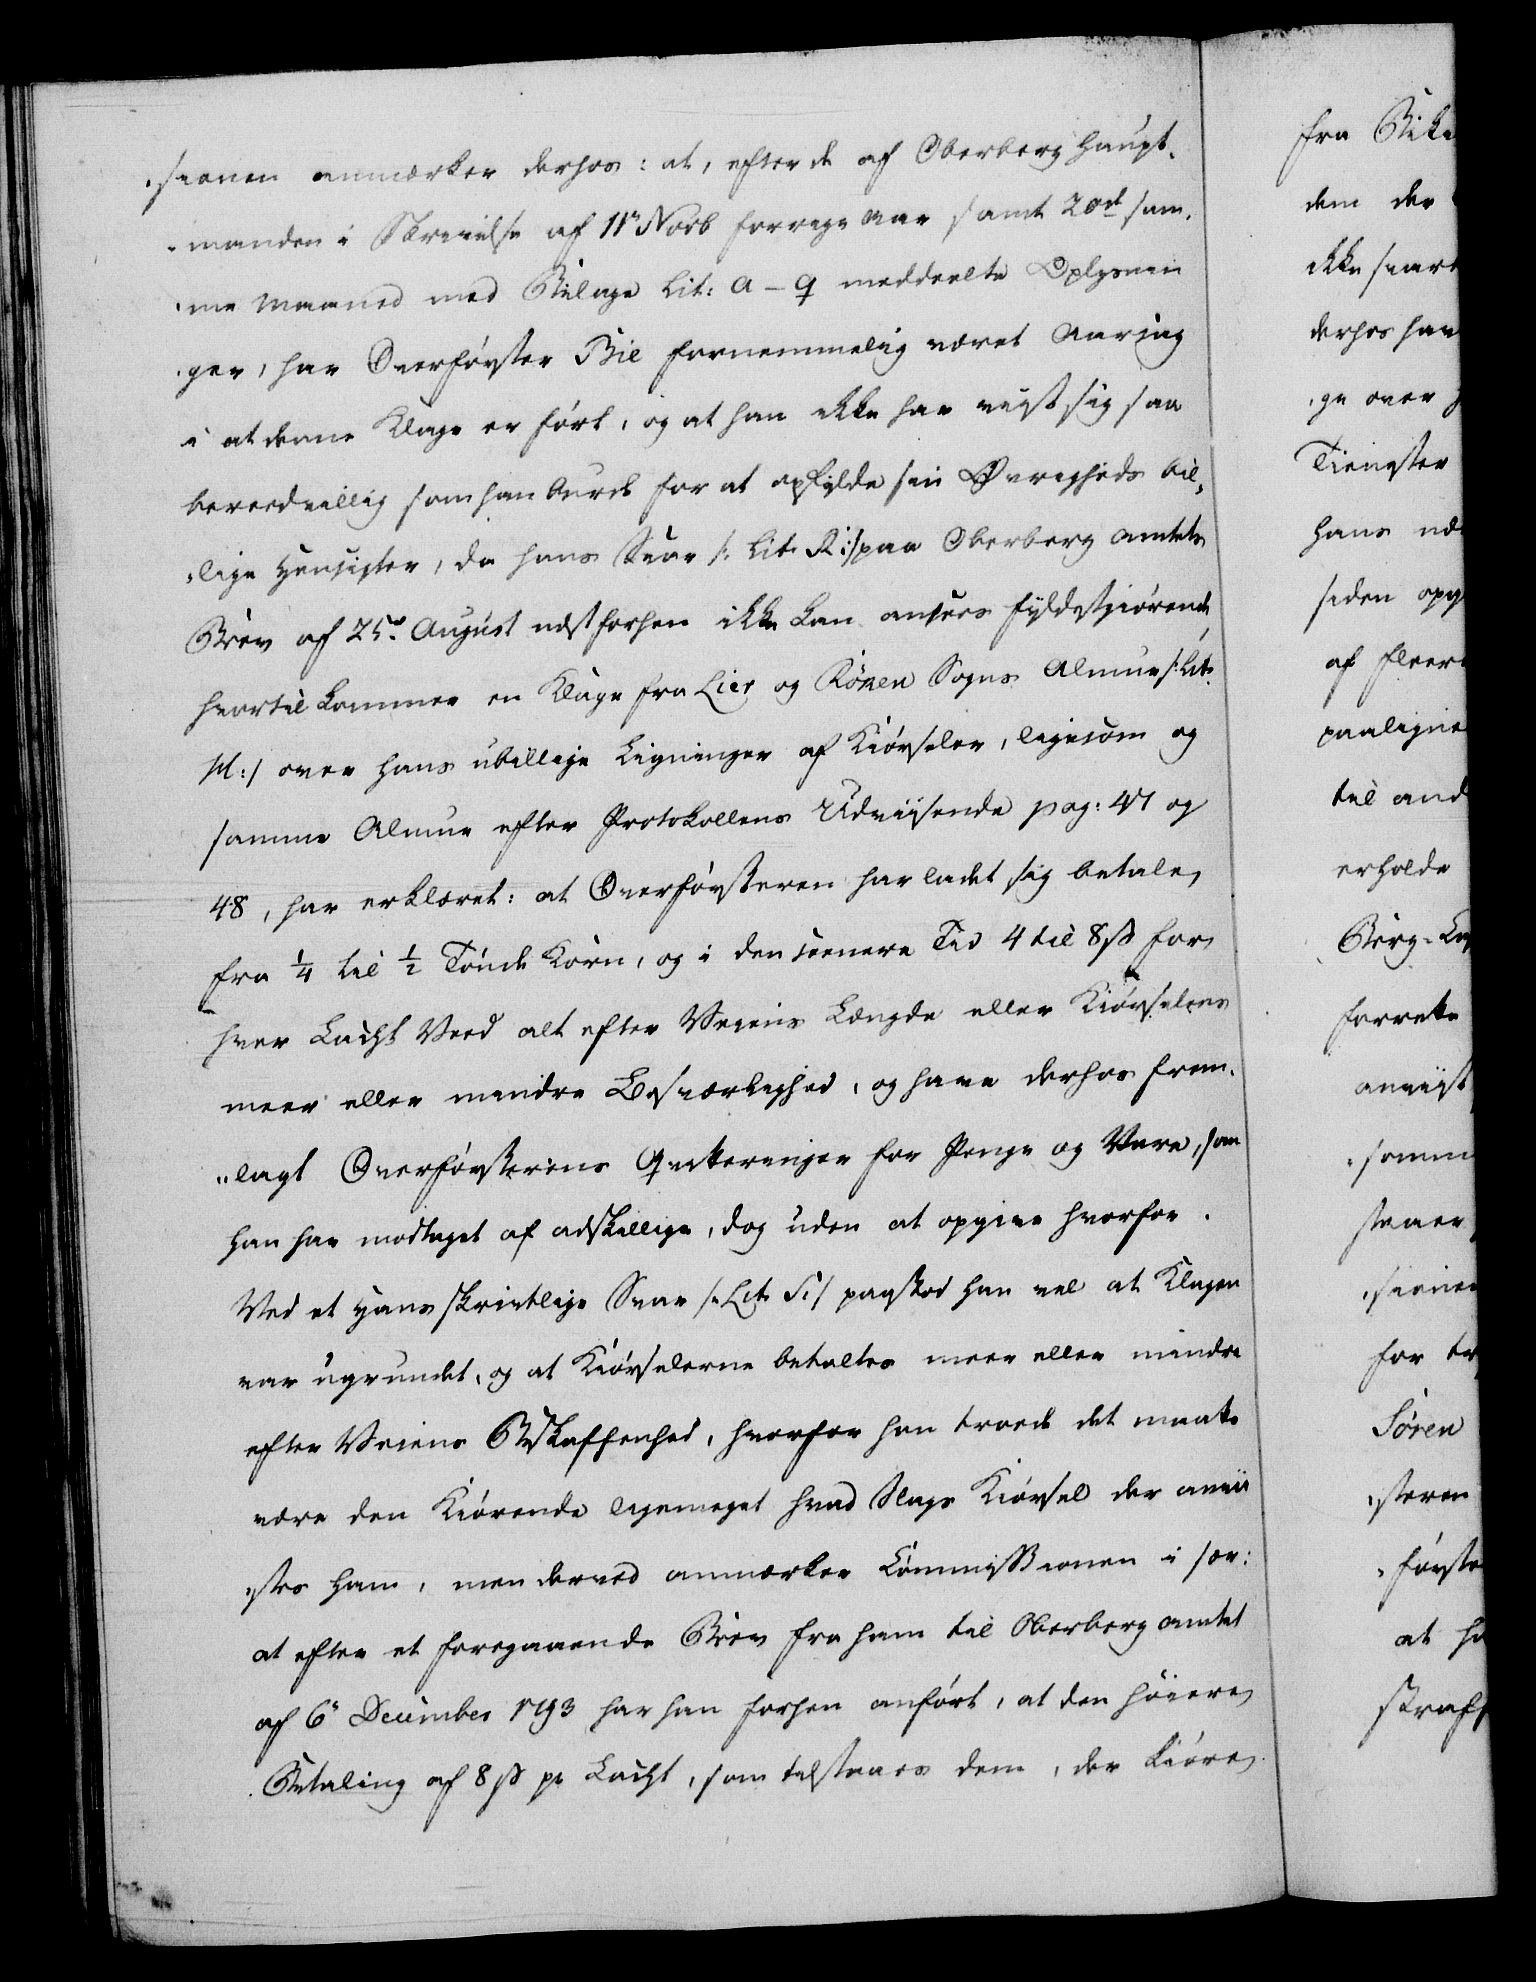 „sionen anmærker derhos: at, efter de af Oberberghaupt-
„manden i Skrivelse af 11te Novb forrige Aar samt 20de sam-
„me Maaned med Bilage Lit: A – Q meddeelte Oplysnin
„ger, har Overførster Bie fornemmelig været Aarsag
i at denne Klage er ført, og at han ikke har viist sig saa
beredvillig som han burde for at opfylde sin Øvrigheds bil-
„lige Hensigter, da hans Svar /: Lit: R :/ paa Oberberg Amtets
Brev af 25de August næstforhen ikke kan ansees fyldestgiørende,
hvortil kommer en Klage fra Lier og Röken Sogns Almue /: Lit:
M :/ over hans ubillige Ligninger af Kiørseler, ligesom og
samme Almue efter Protokollens Udviisende pag: 47 og
48, har erklæret: at Overførsteren har ladet sig betale,
fra ¼ til ½ Tønde Korn, og i den seenere Tid 4 til 8 ß for
hver Lacht Veed alt efter Veiens Længde eller Kiørselens
meer eller mindre Besværlighed, og have derhos frem-
„lagt Overførsterens Qvitteringer for Penge og Vare, som
han har modtaget af adskillige, dog uden at opgive hvorfor.
Ved et Hans skriftlige Svar /: Lit: S :/ paastod han vel at Klagen
var ugrundet, og at Kiørselerne betaltes meer eller mindre
efter Veiens Beskaffenhed, hvorfor han troede det maatte
være den Kiørende ligemeget hvad Slags Kiørsel der anvii
„stes ham, men derved anmærker Commissionen i sær:
at efter et foregaaende Brev fra ham til Oberberg Amtet
af 6te December 1793 har han forhen anført, at den høiere
Betaling af 8 ß pr Lacht, som tilstaaes dem, der kiøre
fra
dem der
derhos har
„ge over
Tienester
hans
siden
af fleere
til and
erholde
Berg-
forrette
anviist
for
Sören
„steren
„første
at